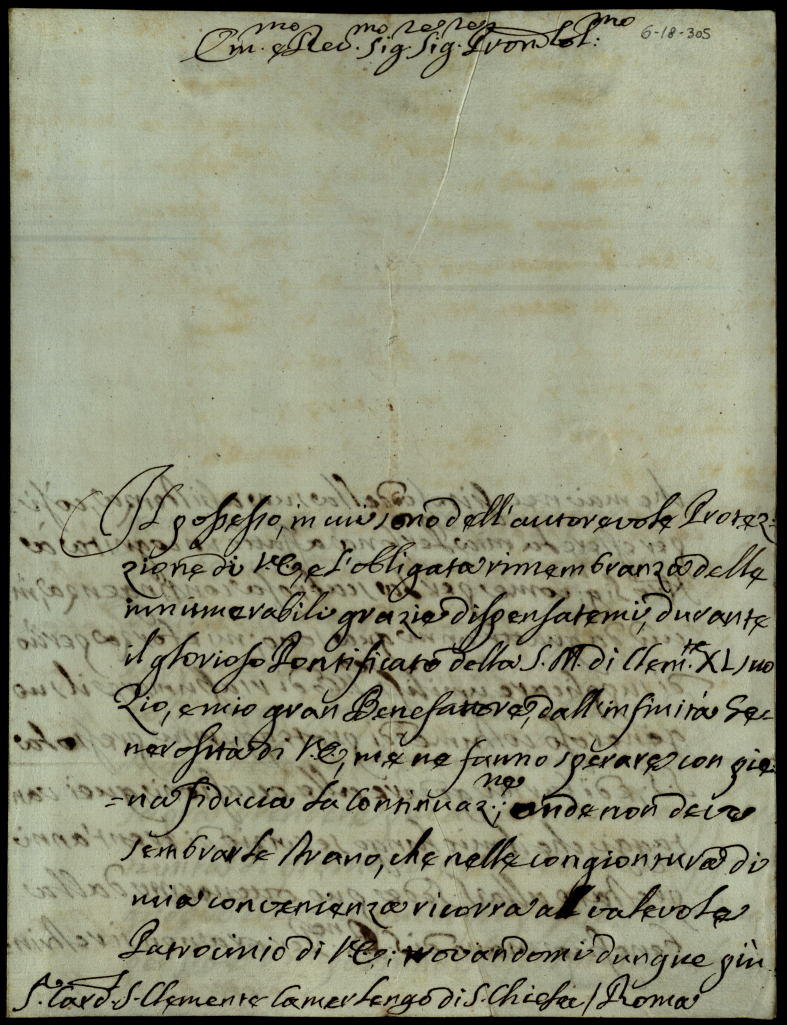 Em.mo e Rev.mo Sig.re Sig.re Pron Col:mo
6-18-305
Il possesso, in cui sono dell'autorevole Protez-
zione di V.E., e l'obligata rimembranza delle
innumerabili grazie dispensatemi, durante
il glorioso Pontificato della S. M. di Clem.te XI suo
Zio, e mio gran Benefattore, dall'infinità Ge-
nerosità di V.E., me ne fanno sperare con pie-
=na fiducia la Continuaz.ne; onde non deve
sembrarle strano, che nelle congionture di
mia convenienza ricorra al valevole
Patrocinio di V.E.; trovandomi dunque più
S.r Card. S. Clemente Camerlengo di S. Chiesa / Roma